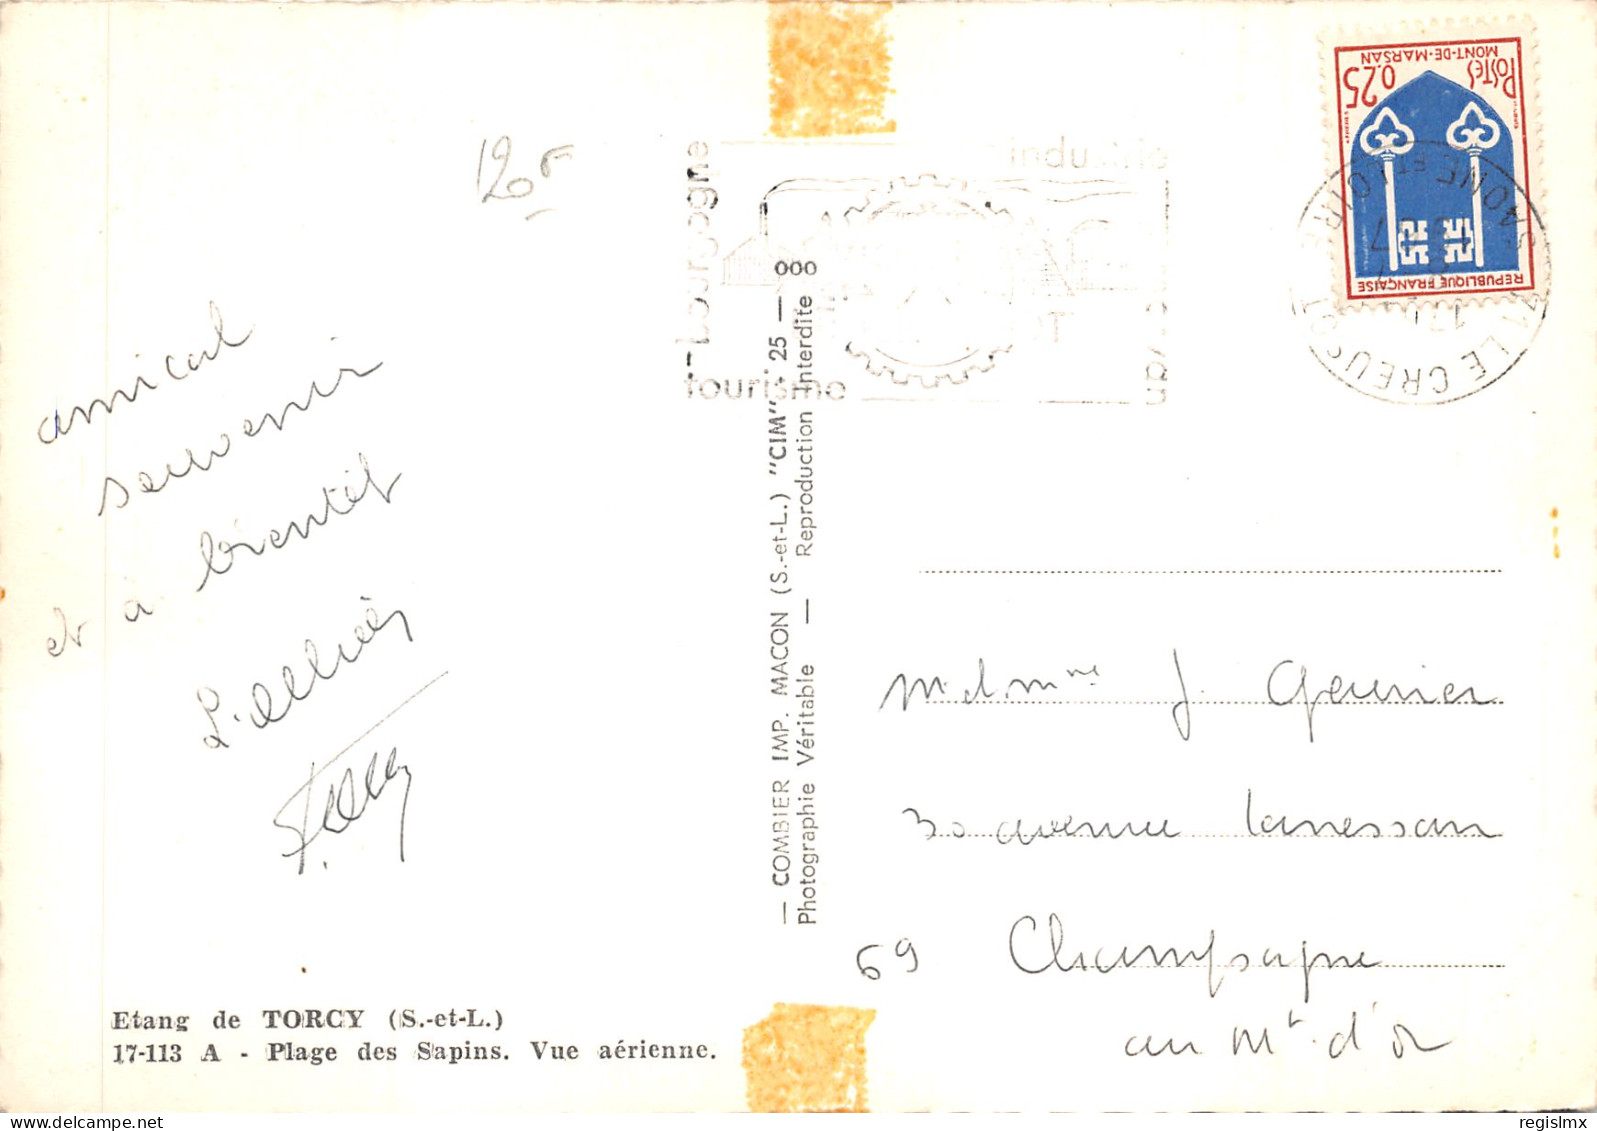 120F
amical
souvenir
et à bientôt
Etang de TORCY (S.-et-L.)
17-113 A - Plage des Sapins. Vue aérienne.
— COMBIER IMP. MACON (S.-et-L.) "CIM" - 25 — ooo
Photographie Véritable — Reproduction Interdite
Bourgogne
tourisme
POSTES
0.25
MONT-DE-MARSAN
REPUBLIQUE FRANÇAISE
71 LE CREUSOT
SAONE ET LOIRE
mdmme J.
30 avenue Lanessan
69 Champagne
au Mt d'Or
regislmx